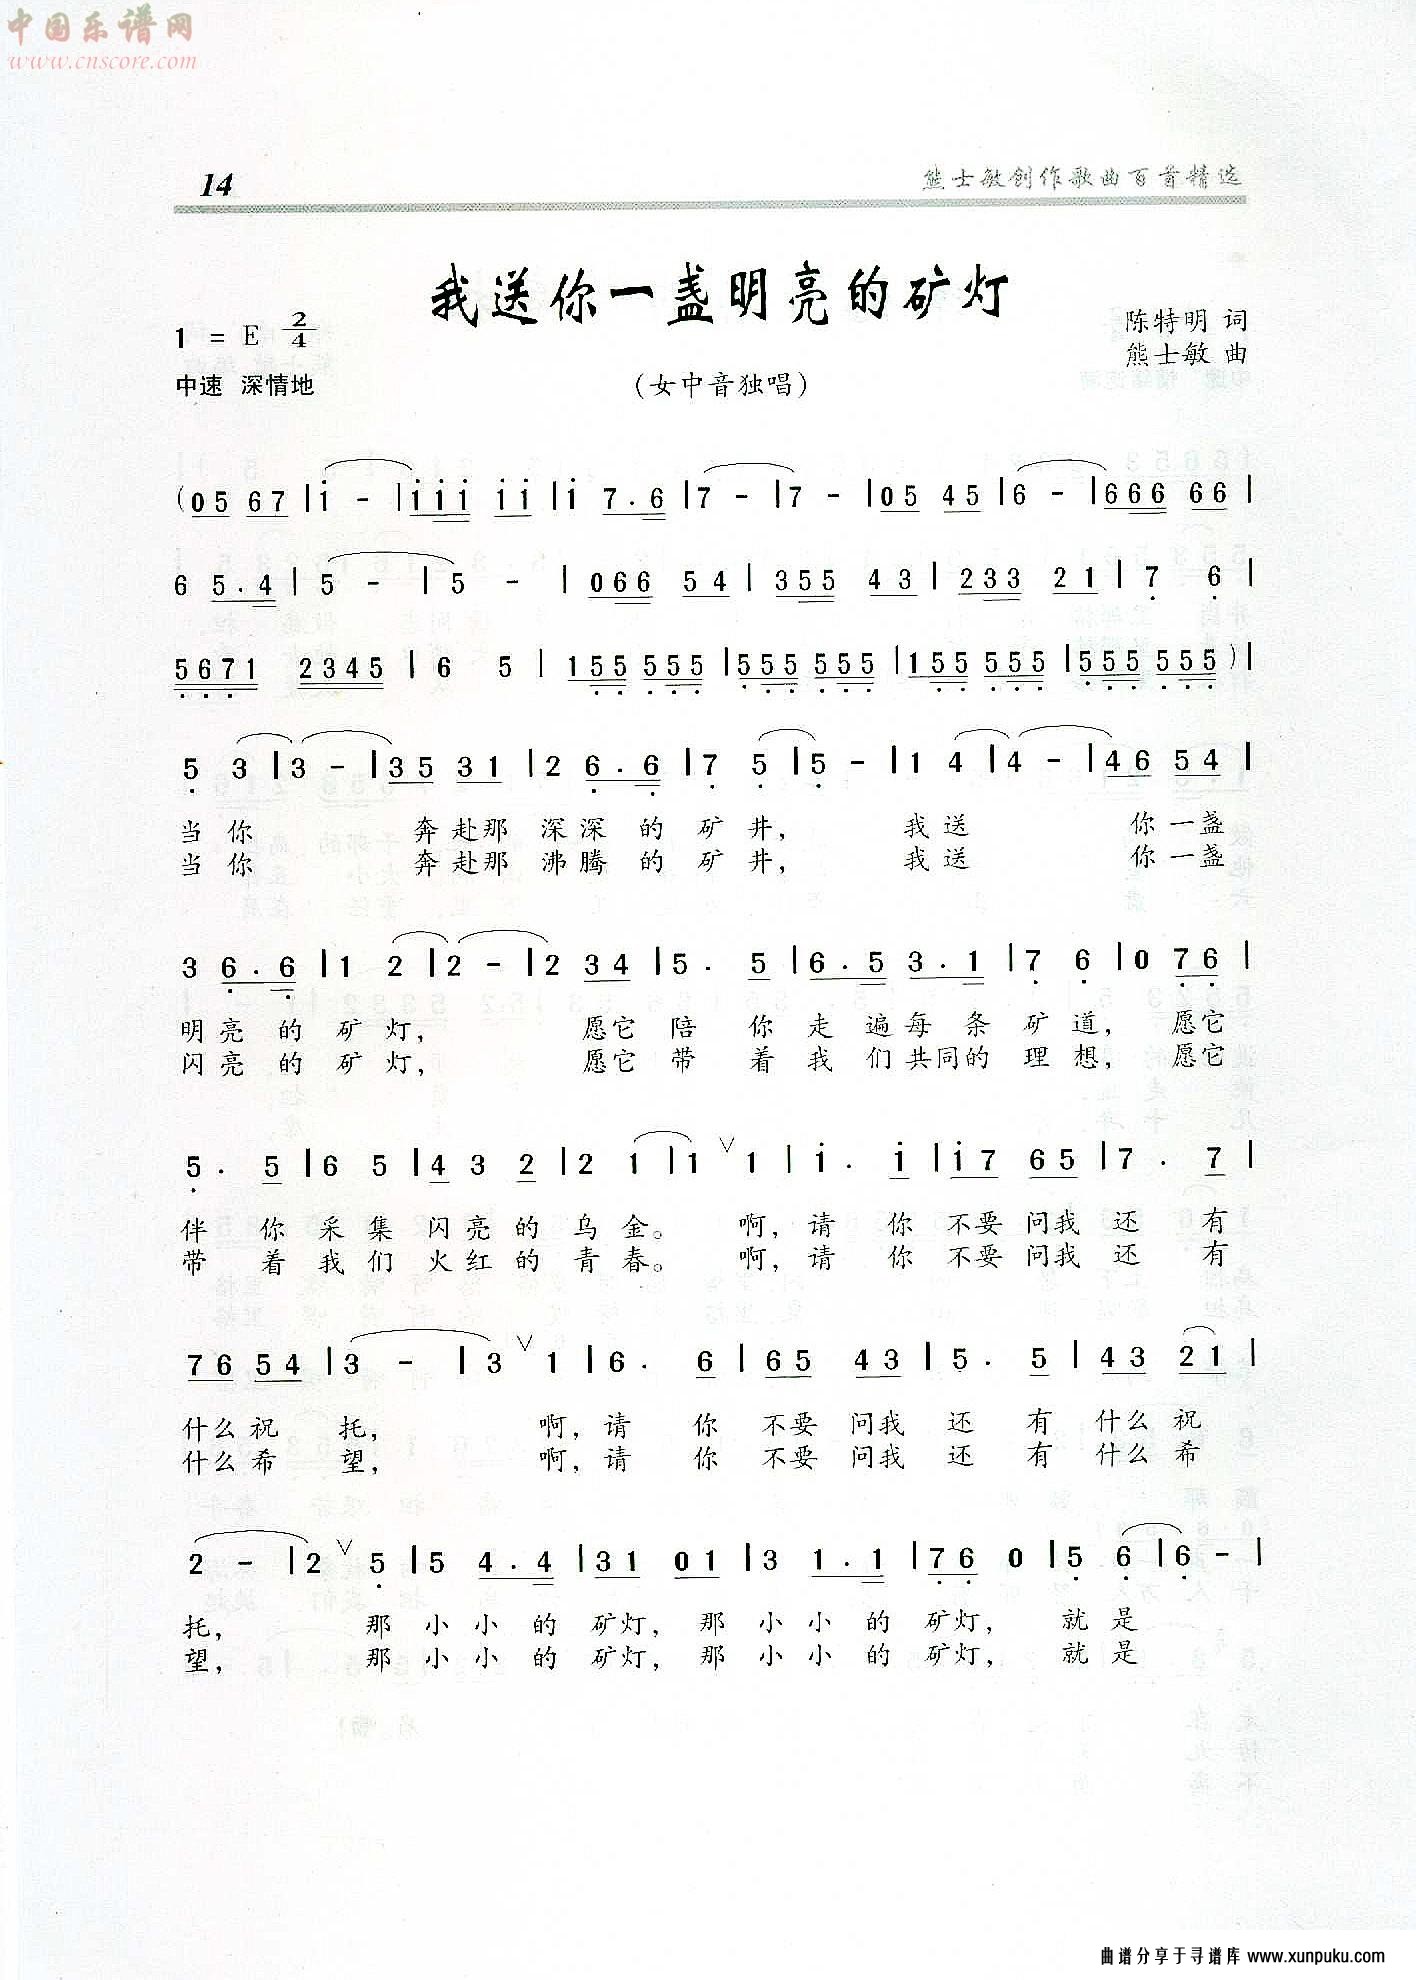 中国乐谱网
www.cnscore.com
14
熊士敏创作歌曲百首精选
我送你一盏明亮的矿灯
1 = E 2/4
陈特明 词
熊士敏 曲
中速 深情地
(女中音独唱)
(05 67 | i - | iii ii | i 7.6 | 7 - | 7 - | 05 45 | 6 - | 666 66 |
6 5.4 | 5 - | 5 - | 066 54 | 355 43 | 233 21 | 7 6 |
5671 2345 | 6 5 | 155 555 | 555 555 | 155 555 | 555 555 ) |
5 3 | 3 - | 35 31 | 2 6.6 | 7 5 | 5 - | 1 4 | 4 - | 46 54 |
当你 奔赴那 深深 的 矿 井, 我送 你一盏
当你 奔赴那 沸腾 的 矿 井, 我送 你一盏
3 6.6 | 1 2 | 2 - | 2 34 | 5. 5 | 6.5 3.1 | 7 6 | 0 76 |
明亮 的 矿 灯, 愿它 陪 你 走 遍每 条 矿 道, 愿它
闪亮 的 矿 灯, 愿它 带 着 我 们共同的 理 想, 愿它
5. 5 | 6 5 | 43 2 | 2 1 | 1 ∨ 1 | i. i | i7 65 | 7. 7 |
伴 你 采集 闪亮 的 乌金。 啊,请 你 不要 问我 还 有
带 着 我们 火红 的 青春。 啊,请 你 不要 问我 还 有
76 54 | 3 - | 3 ∨ 1 | 6. 6 | 65 43 | 5. 5 | 43 21 |
什么祝 托, 啊,请 你 不要 问我 还 有 什么祝
什么希 望, 啊,请 你 不要 问我 还 有 什么希
2 - | 2 ∨ 5 | 5 4.4 | 31 01 | 3 1.1 | 76 0 | 5 6 | 6 - |
托, 那 小 小 的 矿灯, 那 小 小 的 矿灯, 就 是
望, 那 小 小 的 矿灯, 那 小 小 的 矿灯, 就 是
曲谱分享于寻谱库 www.xunpuku.com